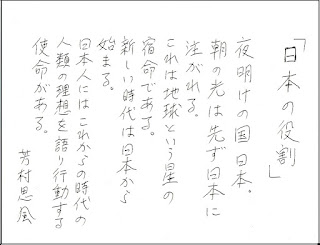 「日本の役割」
夜明けの国日本。
朝の光は先ず日本に
注がれる。
これは地球という星の
宿命である。
新しい時代は日本から
始まる。
日本人にはこれからの時代の
人類の理想を語り行動する
使命がある。
芳村思風